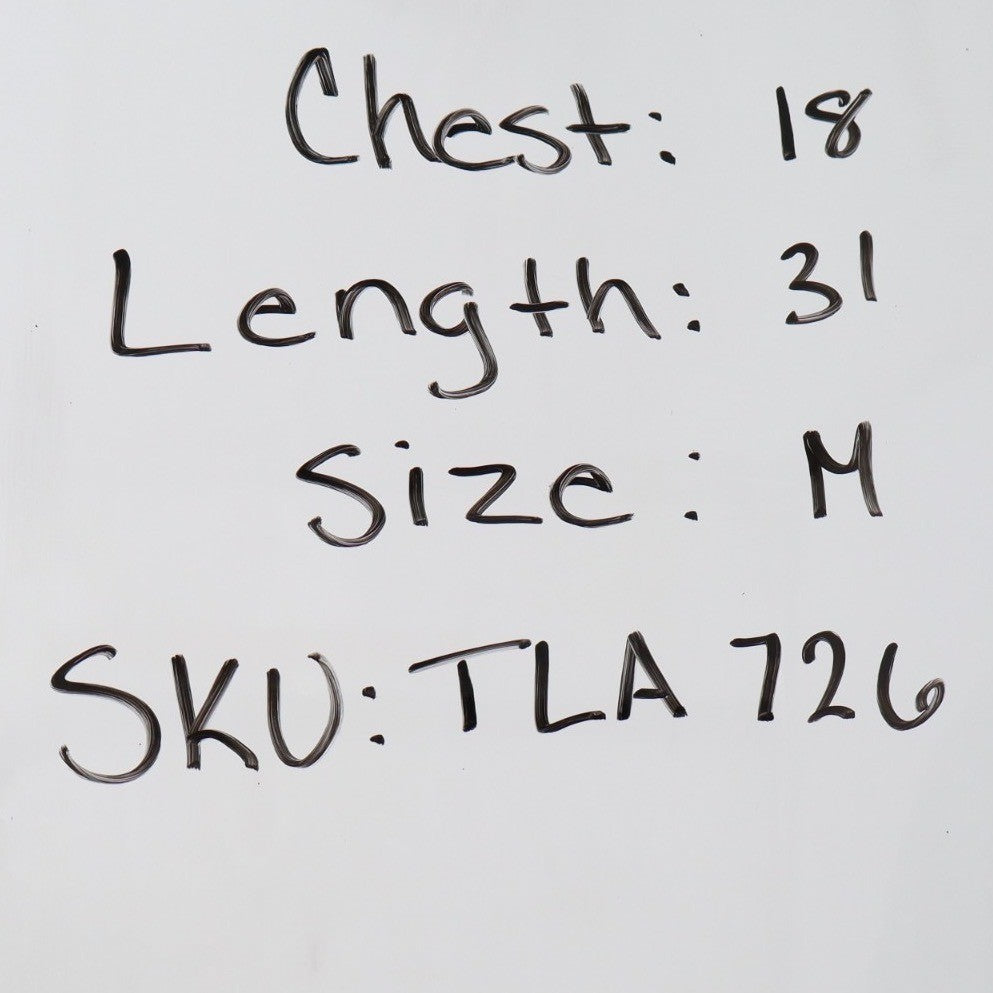 Chest: 18
Length: 31
Size: M
SKU: TLA 726